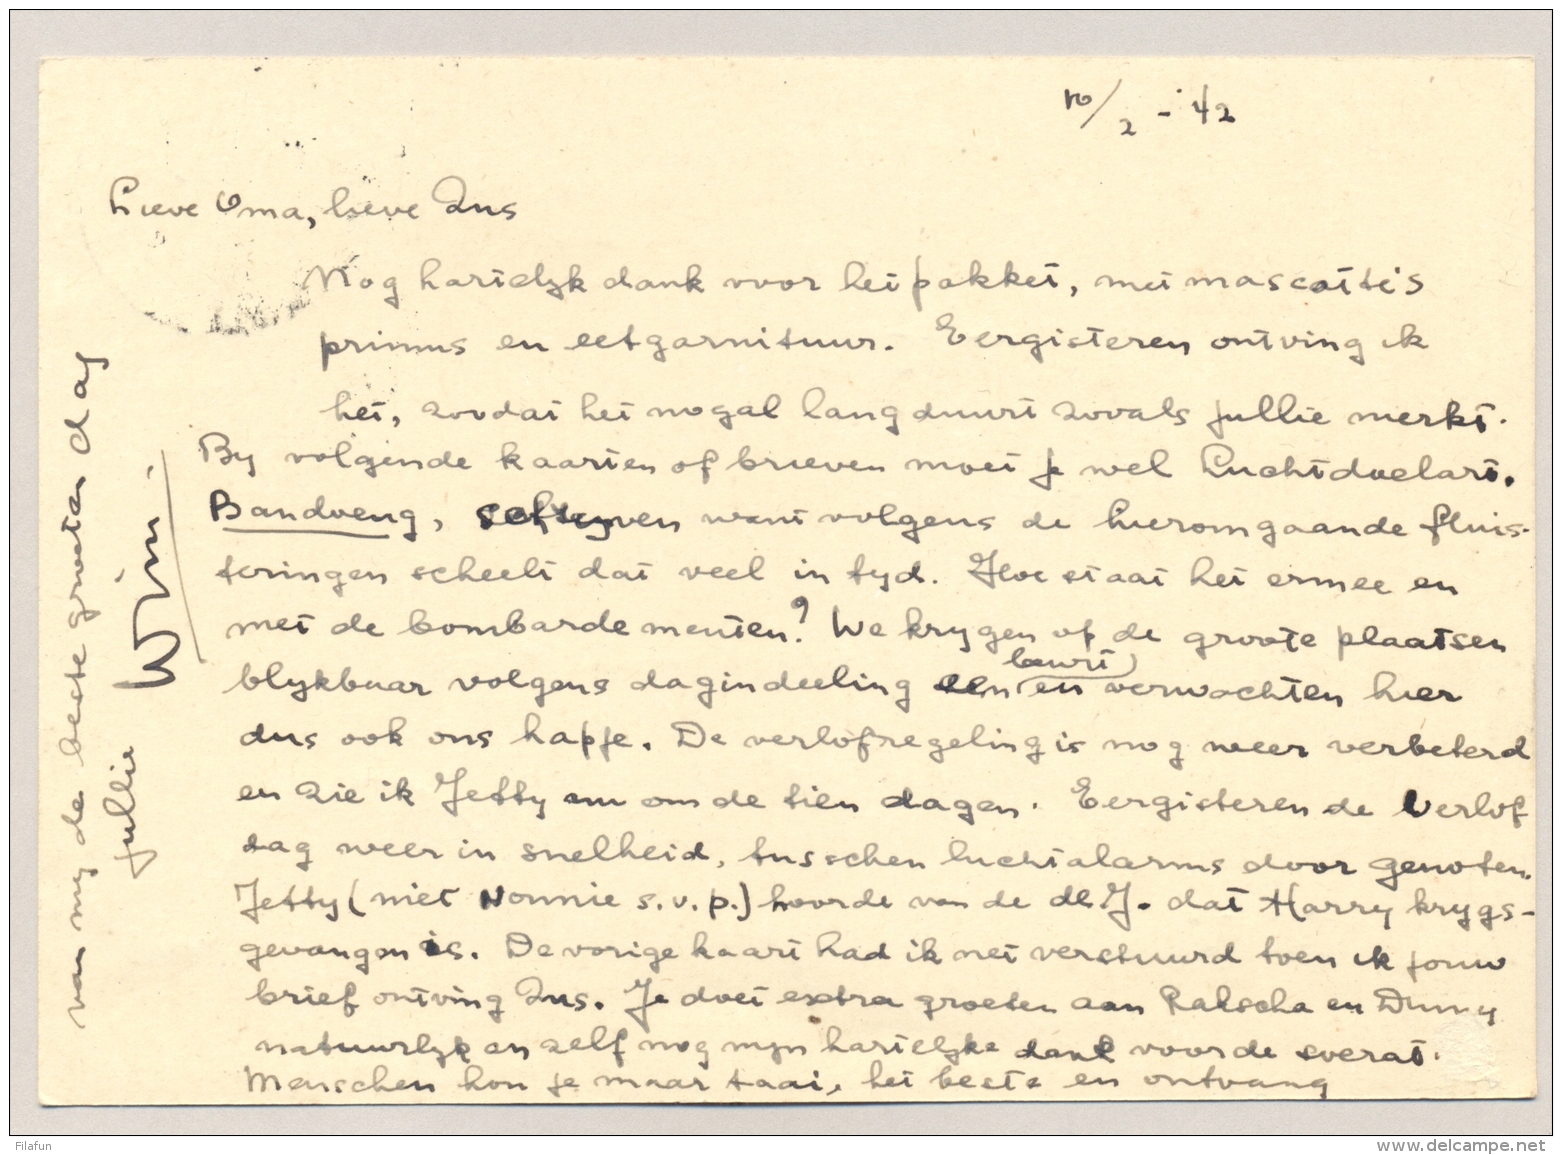 10/2 - '42
Lieve Oma, lieve Zus
Nog hartelyk dank voor het pakket, met mascotte's
primus en eetgarnituur. Eergisteren ontving ik
het, zoodat het nogal lang duurt zooals jullie merkt.
By volgende kaarten of brieven moet je wel Luchtdoelart.
Bandoeng, schryven want volgens de hieromgaande fluis-
teringen scheelt dat veel in tyd. Hoe staat het ermee en
met de bombardementen? We krygen op de groote plaatsen
blykbaar volgens dagindeeling een beurt en verwachten hier
dus ook ons hapje. De verlofregeling is nog weer verbeterd
en zie ik Jetty nu om de tien dagen. Eergisteren de verlof
dag weer in snelheid, tusschen luchtalarms door genoten.
Jetty (niet Nonnie s.v.p.) hoorde van de dl. J. dat Harry krygs-
gevangen is. De vorige kaart had ik net verstuurd toen ik jouw
brief ontving Zus. Je doet extra groeten aan en
natuurlyk en zelf nog myn hartelyke dank voor de
Menschen hou je maar taai, het beste en ontvang
van my de beste groeten dag
jullie Wim.
Filafun
www.delcampe.net